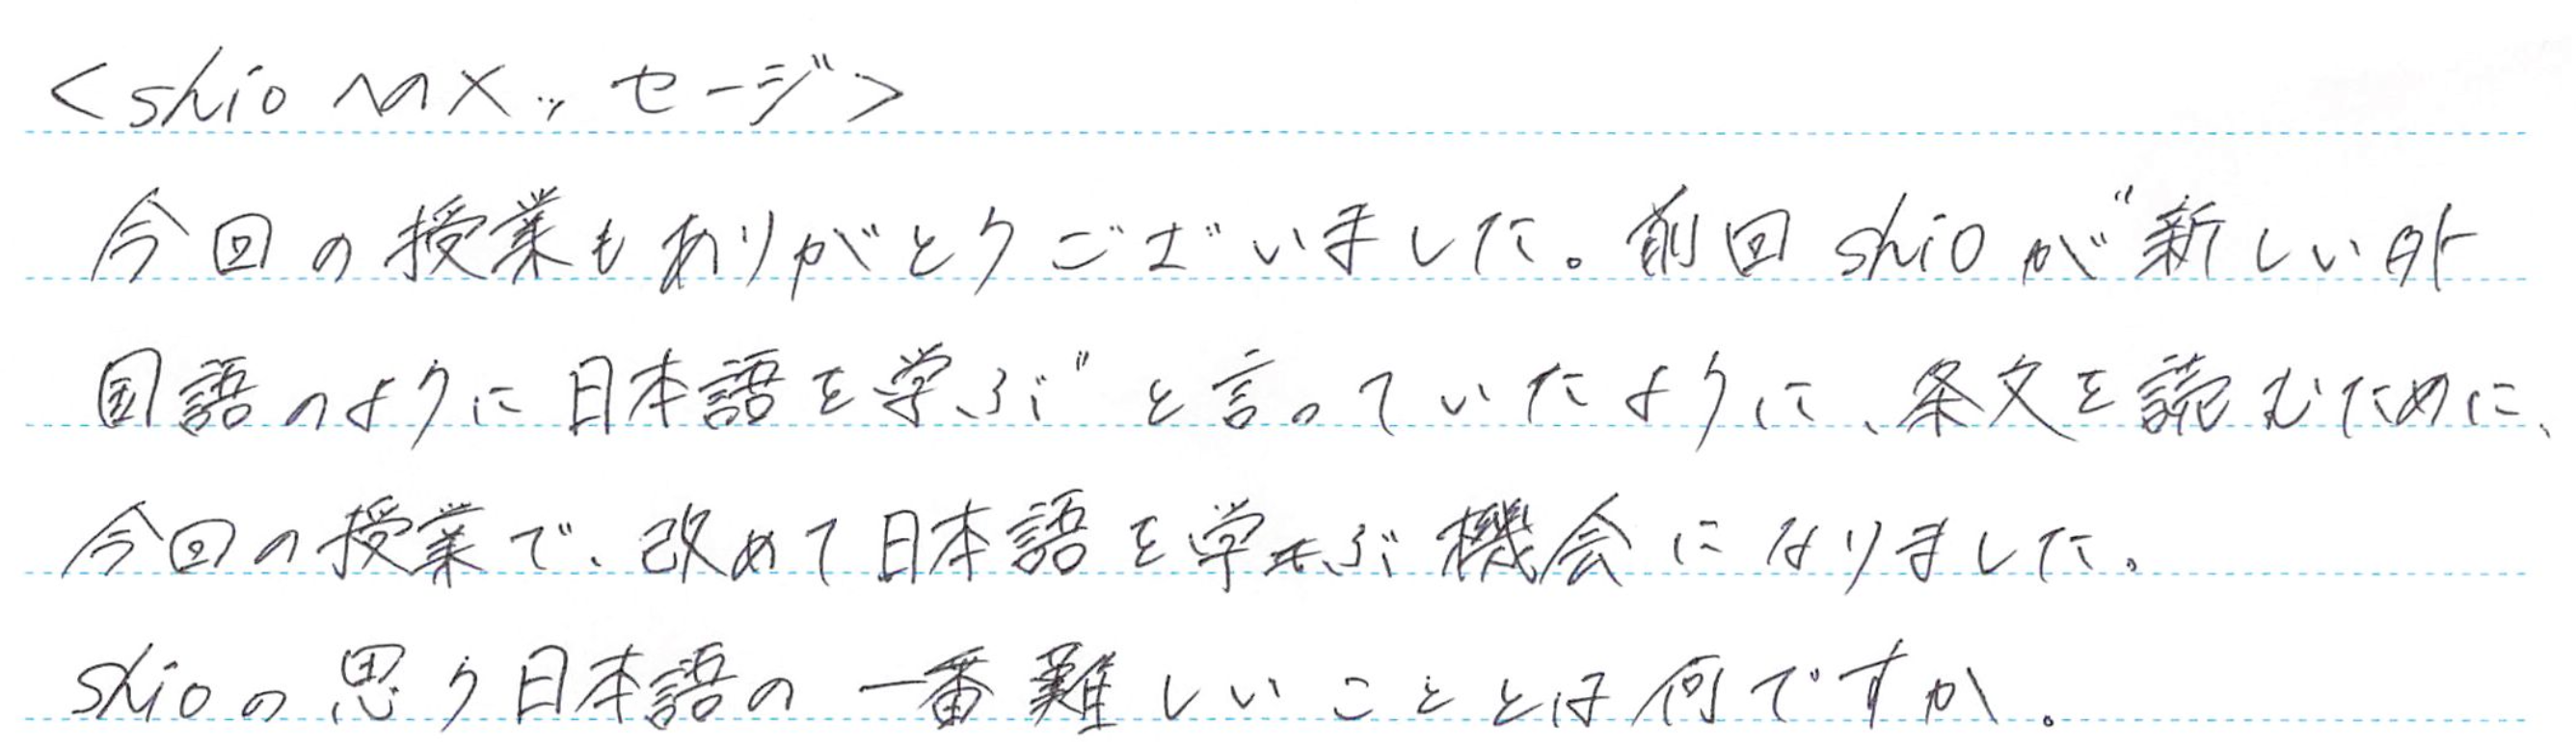 <shioへのメッセージ>
今回の授業もありがとうございました。前回shioが"新しい外
国語のように日本語を学ぶ"と言っていたように、条文を読むために、
今回の授業で、改めて日本語を学ぶ機会になりました。
shioの思う日本語の一番難しいこととは何ですか。